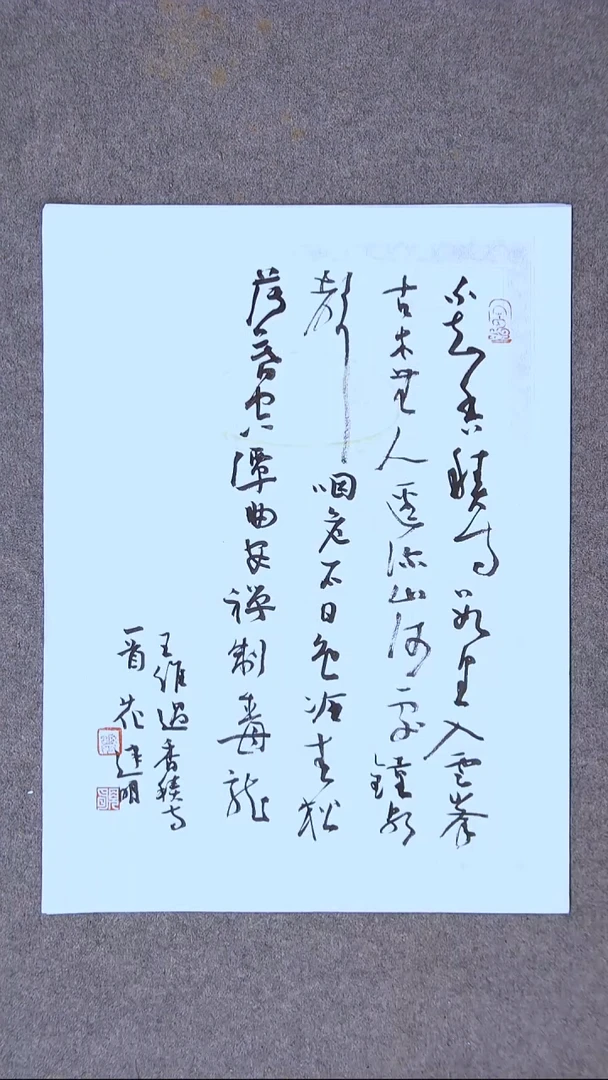 不知香積寺數里入雲峯
古木無人逕深山何處鐘泉
聲咽危石日色冷青松
薄暮空潭曲安禪制毒龍
王維過香積寺
一首 建明